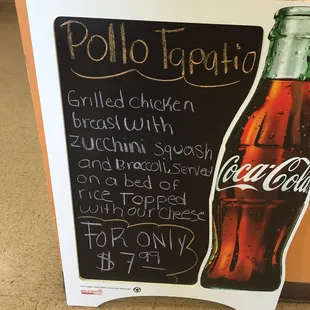 Pollo Tapatio
Grilled chicken
breast with
zucchini squash
and Broccoli. Served
on a bed of
rice Topped
with our cheese
FOR ONLY
$7.99
Coca-Cola